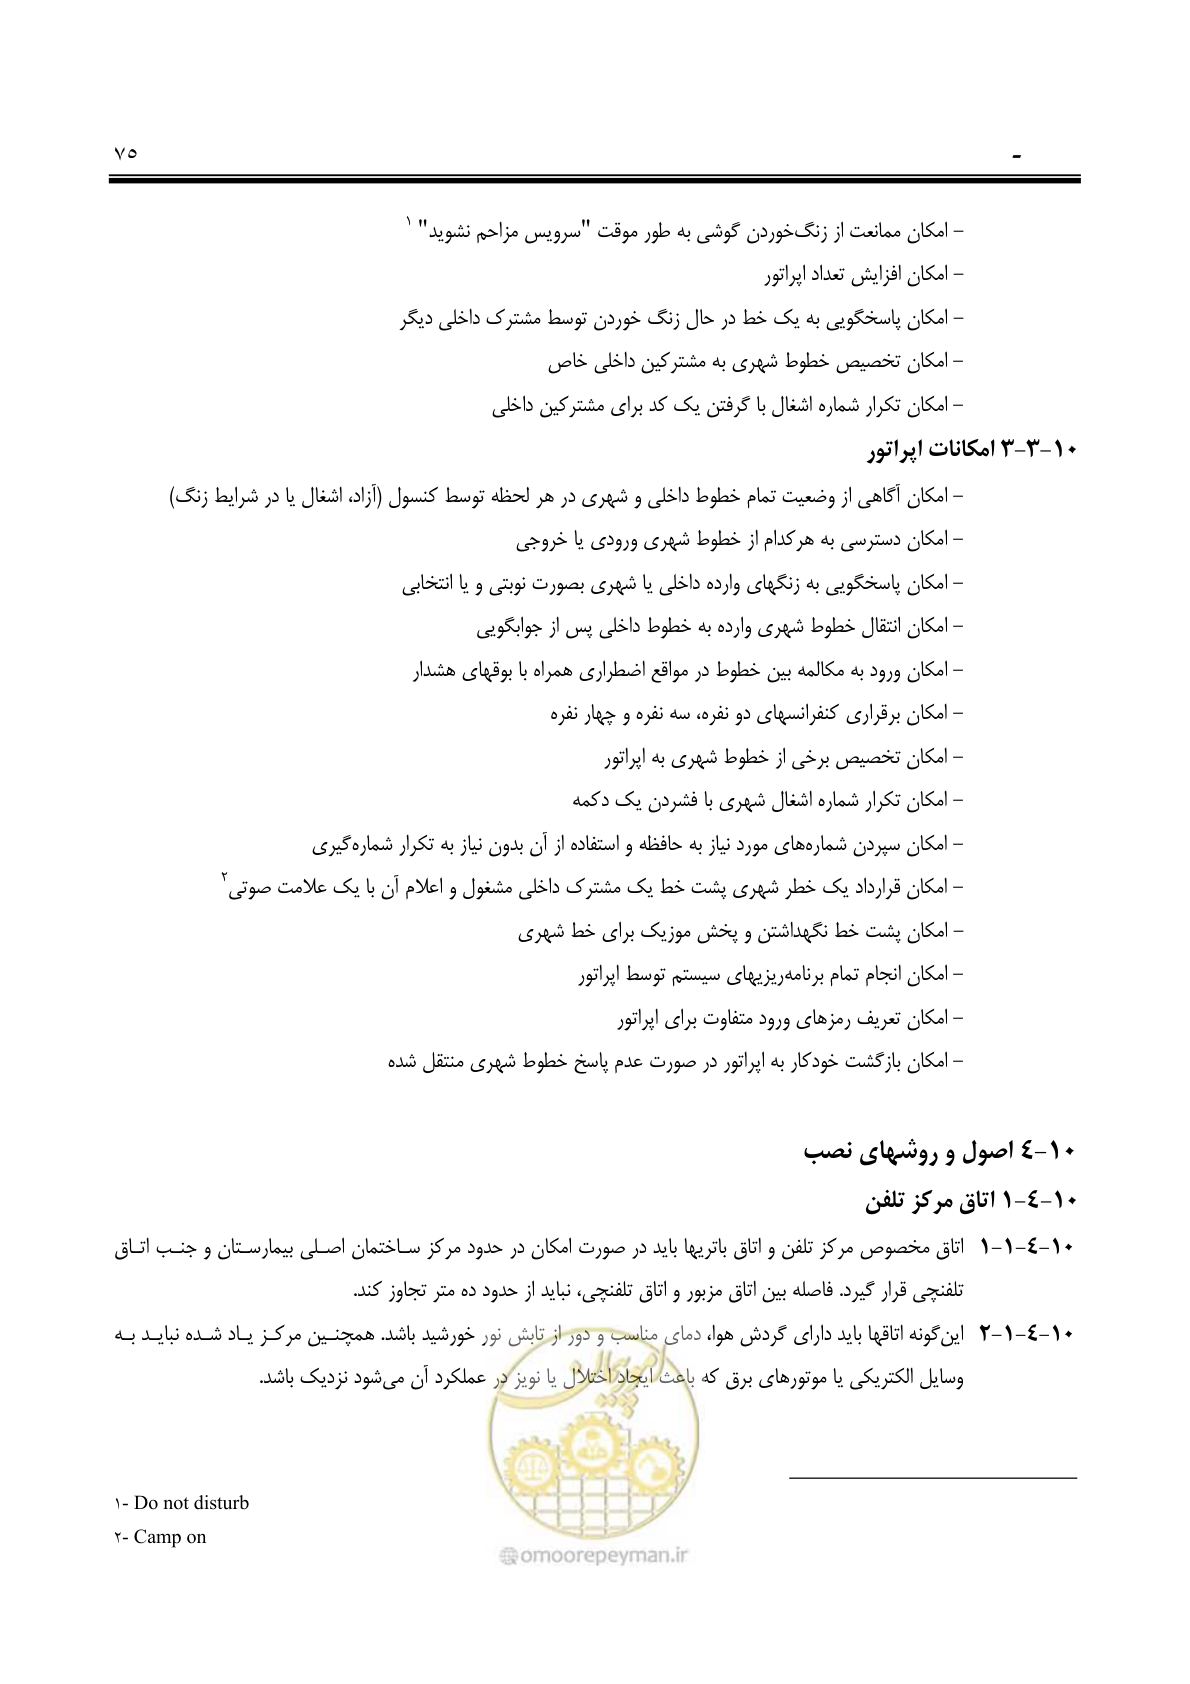 - ۷۵
– امکان ممانعت از زنگ‌خوردن گوشی به طور موقت "سرویس مزاحم نشوید" ۱
– امکان افزایش تعداد اپراتور
– امکان پاسخگویی به یک خط در حال زنگ خوردن توسط مشترک داخلی دیگر
– امکان تخصیص خطوط شهری به مشترکین داخلی خاص
– امکان تکرار شماره اشغال با گرفتن یک کد برای مشترکین داخلی
۱۰–۳–۳ امکانات اپراتور
– امکان آگاهی از وضعیت تمام خطوط داخلی و شهری در هر لحظه توسط کنسول (آزاد، اشغال یا در شرایط زنگ)
– امکان دسترسی به هرکدام از خطوط شهری ورودی یا خروجی
– امکان پاسخگویی به زنگهای وارده داخلی یا شهری بصورت نوبتی و یا انتخابی
– امکان انتقال خطوط شهری وارده به خطوط داخلی پس از جوابگویی
– امکان ورود به مکالمه بین خطوط در مواقع اضطراری همراه با بوقهای هشدار
– امکان برقراری کنفرانسهای دو نفره، سه نفره و چهار نفره
– امکان تخصیص برخی از خطوط شهری به اپراتور
– امکان تکرار شماره اشغال شهری با فشردن یک دکمه
– امکان سپردن شماره‌های مورد نیاز به حافظه و استفاده از آن بدون نیاز به تکرار شماره‌گیری
– امکان قرارداد یک خطر شهری پشت خط یک مشترک داخلی مشغول و اعلام آن با یک علامت صوتی۲
– امکان پشت خط نگهداشتن و پخش موزیک برای خط شهری
– امکان انجام تمام برنامه‌ریزیهای سیستم توسط اپراتور
– امکان تعریف رمزهای ورود متفاوت برای اپراتور
– امکان بازگشت خودکار به اپراتور در صورت عدم پاسخ خطوط شهری منتقل شده
۱۰–٤ اصول و روشهای نصب
۱۰–٤–۱ اتاق مرکز تلفن
۱۰–٤–۱–۱ اتاق مخصوص مرکز تلفن و اتاق باتریها باید در صورت امکان در حدود مرکز ساختمان اصلی بیمارستان و جنب اتاق
تلفنچی قرار گیرد. فاصله بین اتاق مزبور و اتاق تلفنچی، نباید از حدود ده متر تجاوز کند.
۱۰–٤–۱–۲ این‌گونه اتاقها باید دارای گردش هوا، دمای مناسب و دور از تابش نور خورشید باشد. همچنین مرکز یاد شده نباید به
وسایل الکتریکی یا موتورهای برق که باعث ایجاد اختلال یا نویز در عملکرد آن می‌شود نزدیک باشد.
امور پیمان
۱- Do not disturb
۲- Camp on
@omoorepeyman.ir